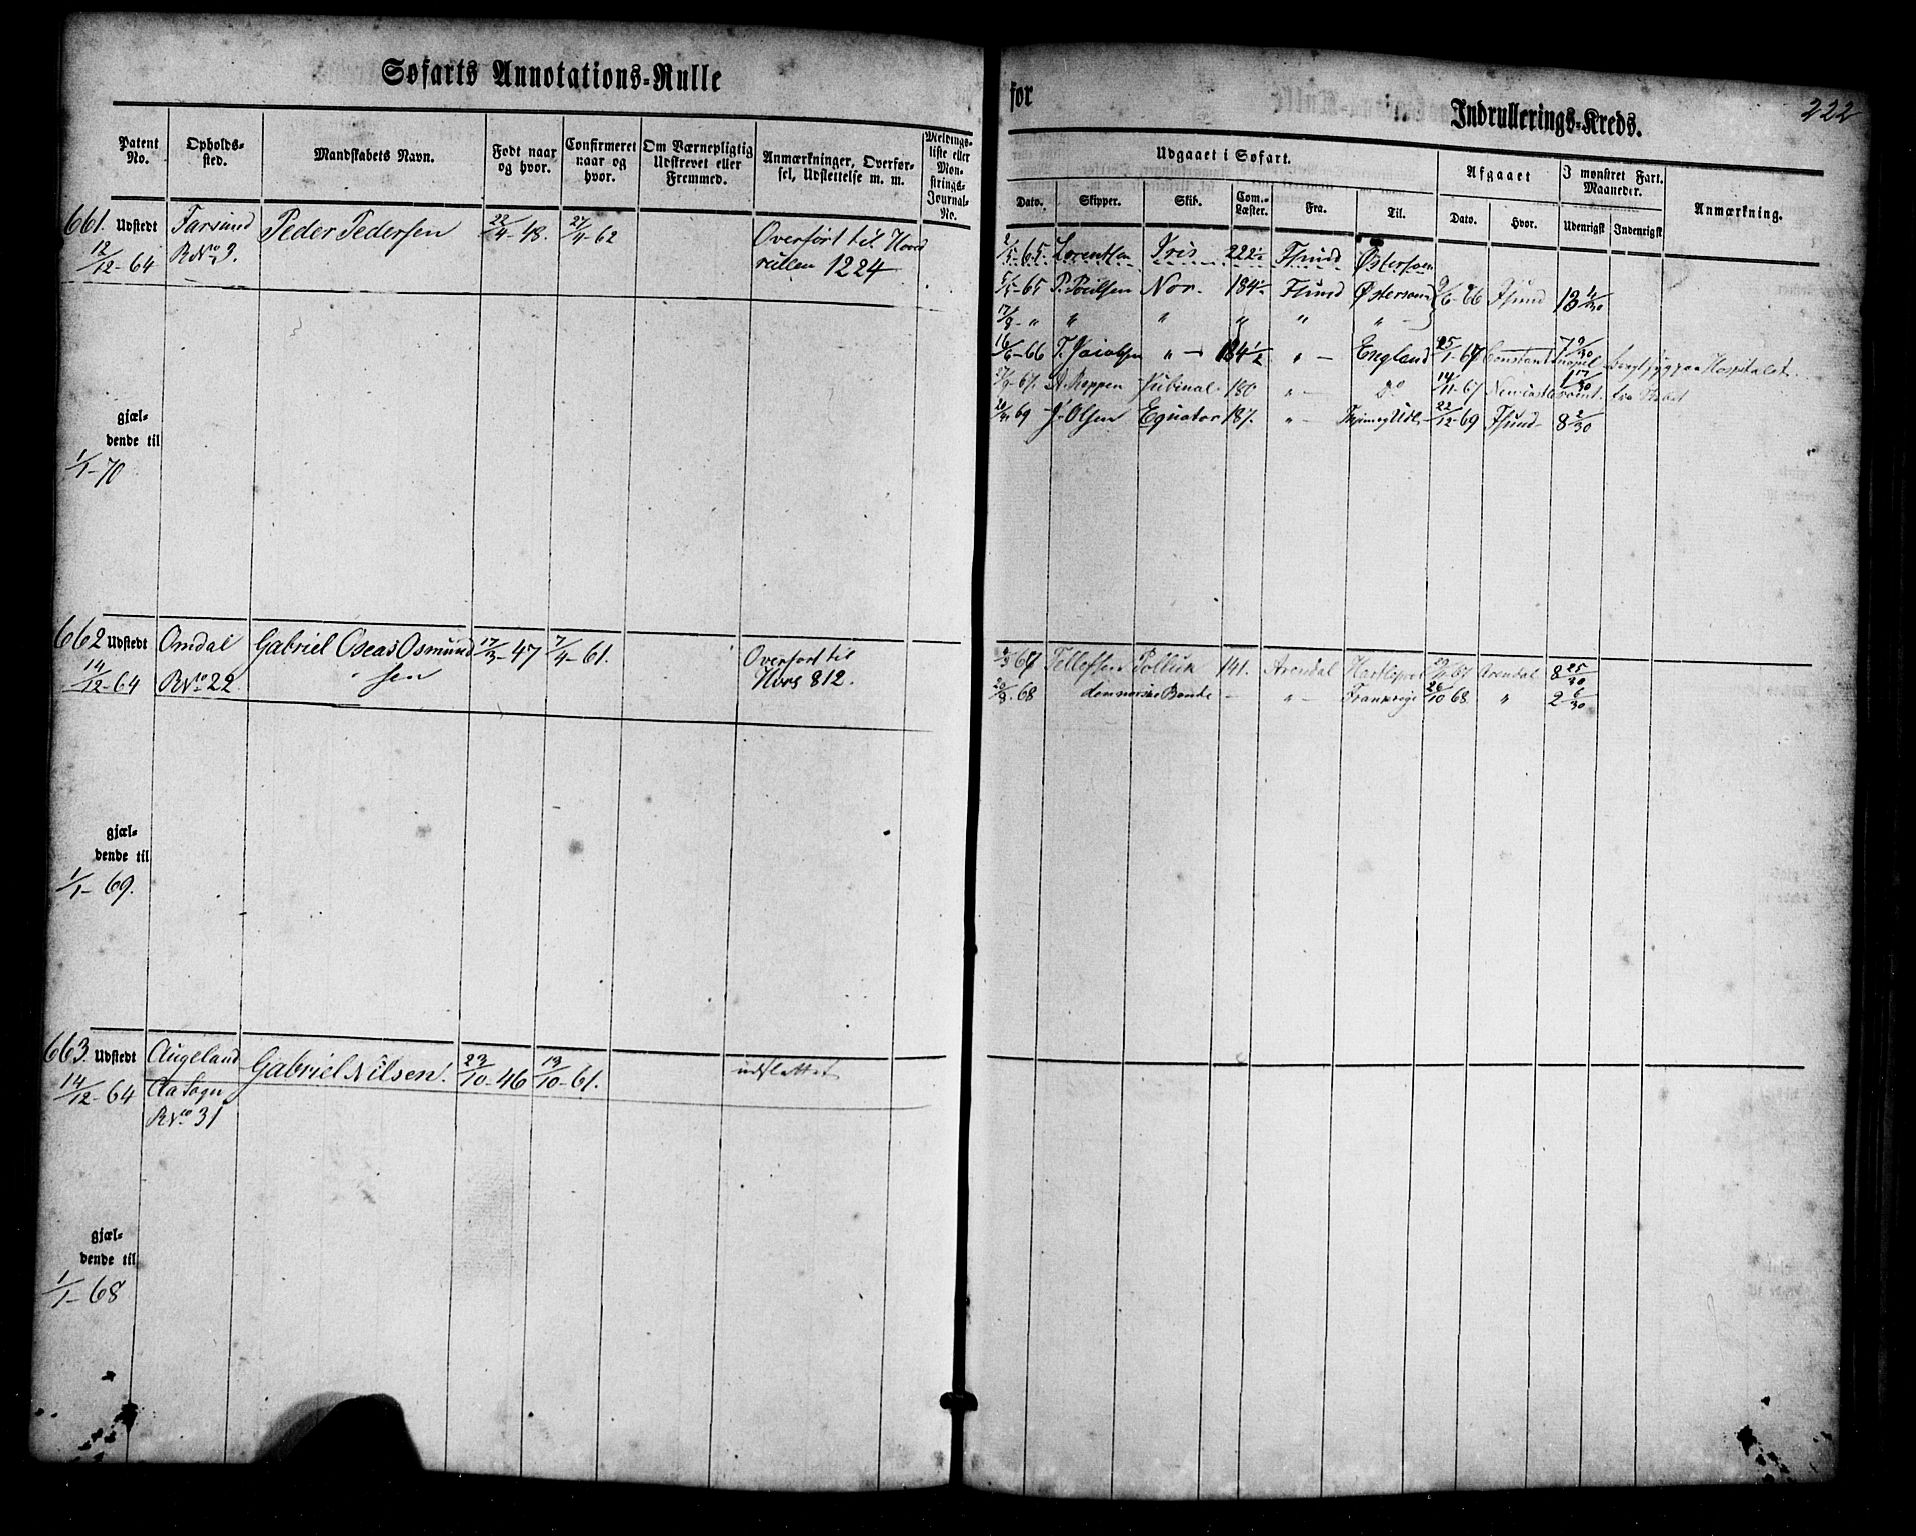 Søfarts Annotations-Rulle
for
Indrullerings-Kreds.
222
Patent No.
Opholds-sted.
Mandskabets Navn.
Født naar og hvor.
Confirmeret naar og hvor.
Om Værnepligtig Udskrevet eller Fremmed.
Anmærkninger, Overførsel, Udslettelse m. m.
Meldings-liste eller Mønstrings-Journal-No.
Udgaaet i Søfart.
Afgaaet
I mønstret Fart. Maaneder.
Anmærkning.
Dato.
Skipper.
Skib.
Com.-Læster.
Fra.
Til.
Dato.
Hvor.
Udenrigsk
Indenrigsk
661. Udstedt Farsund Peder Pedersen 22/4-48. 27/4-62 Overført til Hoved
12/12-64 R No 3. rullen 1224
5-65. Lorentsen Iris 222½ Fsund Østersøen
65 P. Poulsen Nor. 184½ Fsund Østersøen 9/6-66 Fsund 13
" " " " "
16/6-66 T. Jacobsen " 184½ " England 25/1-67 Constantinopel 7 9/30 Hospitalet.
67. A. Reppen Jubinal 180 " Do 14/11-67 Newcastle
69 J. Olsen Equator 187. " 22/12-69 Fsund 8 2/30
gjæl-
dende til
1/1-70
662 Udstedt Omdal Gabriel Oseas Osmund 17/3-47 7/4-61. Overført til
14/12-64 R No 22 sen Hovs 812.
67 Tellefsen Pollux 141. Arendal Hartlepool 67 Arendal 8 25/30
20/8. 68 den norske Bonde - " Frankrige 26/10 68 " 2 6/30
gjæl-
dende til
1/1-69.
663. Udstedt Augeland Gabriel Nilsen. 23/10-46 13/10-61. udslettet
14/12-64 Oa Sogn
R No 31
gjæl-
dende til
1/1-68